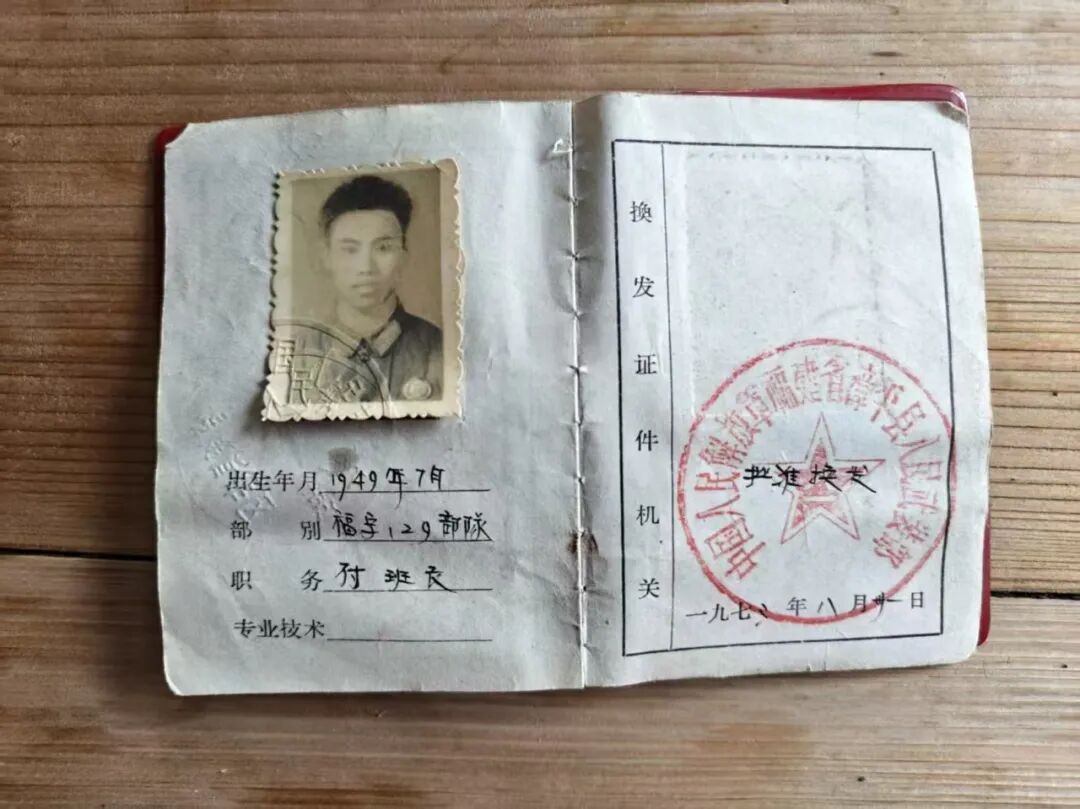 出生年月 1949年7月
部别 福字129部队
职务 付班长
专业技术
换发证件机关
中国人民解放军福建省漳平县人民武装部
批准换发
一九七 年八月 日